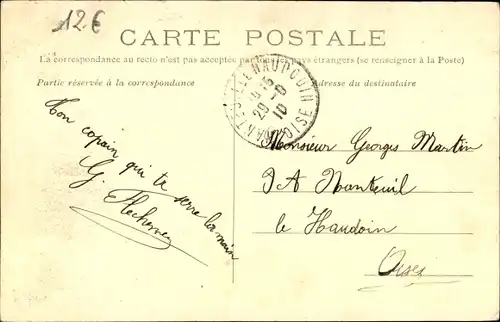 12€
CARTE POSTALE
La correspondance au recto n'est pas acceptée par tous les pays étrangers (se renseigner à la Poste)
Partie réservée à la correspondance
Adresse du destinataire
NANTEUIL-LE-HAUDOUIN
OISE
29
10
Ton copain qui te
serre la main
G.
Monsieur Georges Martin
à Nanteuil
le Haudoin
Oise